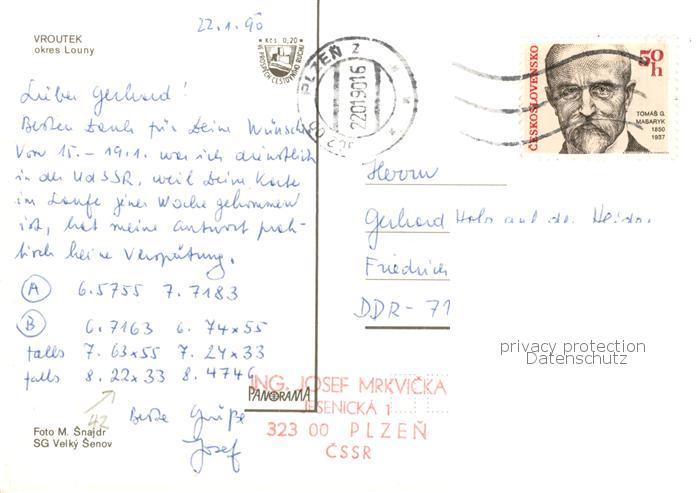 22.1.90
VROUTEK
okres Louny
Kčs 0,20
VE PROSPĚCH CESTOVNÍHO RUCHU
PLZEŇ 2
22019016
ČESKOSLOVENSKO
50 h
TOMÁŠ G. MASARYK
1850
1937
Lieber Gerhard!
Besten Dank für Deine Wünsche
Vom 15.-19.1. war ich dienstlich
in der UdSSR, weil Deine Karte
im Laufe jener Woche gekommen
ist, hat meine Antwort prak-
tisch keine Verspätung.
A 6.5755 7.7183
B 6.7163 6. 74x55
falls 7. 63x55 7. 24x33
falls 8. 22x33 8. 4746
42
Beste Grüße
Josef
Herrn
Gerhard
Friedrich
DDR-71
privacy protection
Datenschutz
PANORAMA
ING. JOSEF MRKVIČKA
JESENICKÁ 1
323 00 PLZEŇ
ČSSR
Foto M. Šnajdr
SG Velký Šenov